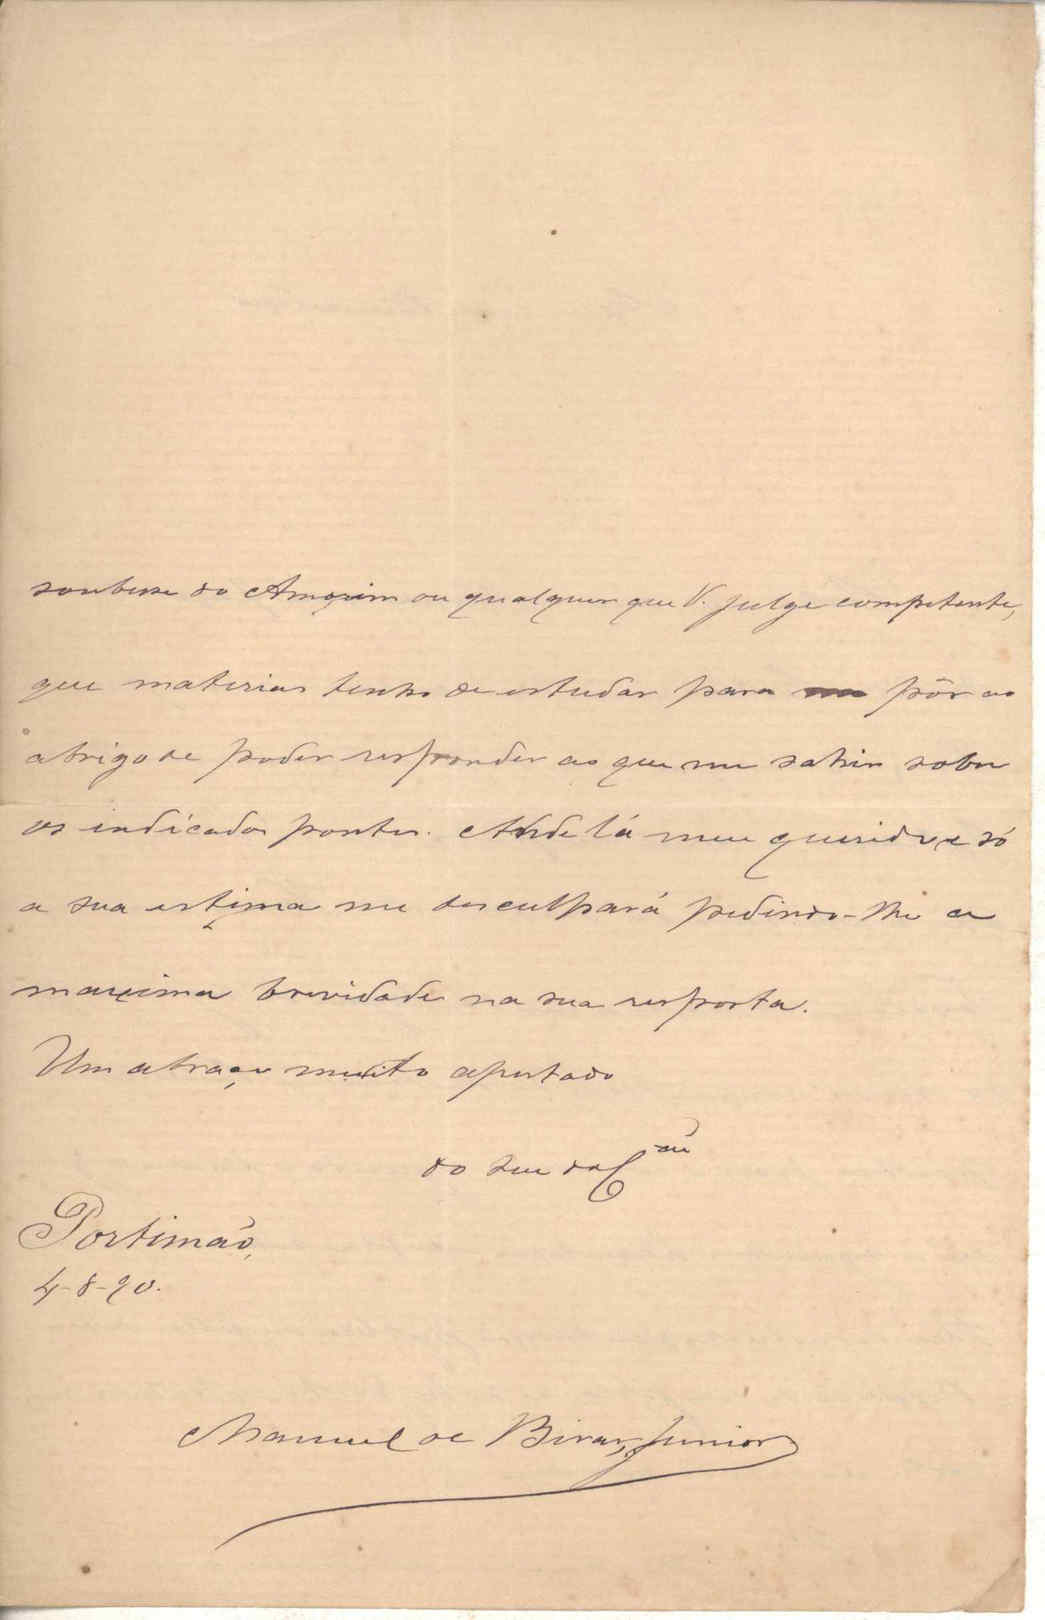 soubesse do Amorim ou qualquer que V. julge competente,
que materias tenho de estudar para pôr ao
abrigo de poder responder ao que me sahir sobre
os indicados pontos. Ande lá meu querido, e só
a sua estima me desculpará pedindo-lhe a
maxima brevidade na sua resposta.
Um abraço muito apertado
do seu do C
Portimão,
4-8-90.
Manuel de Bivar, Junior